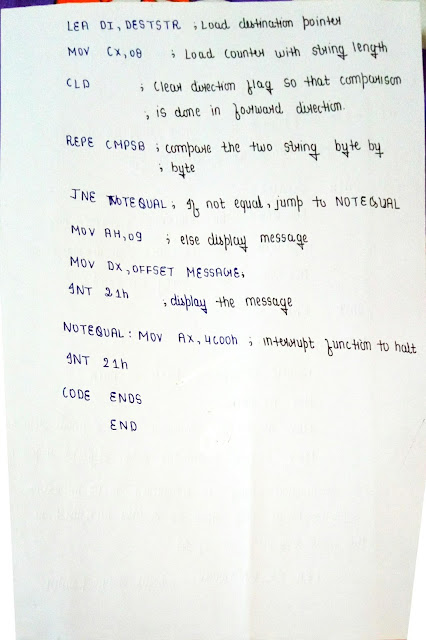 LEA DI, DESTSTR ; Load destination pointer
MOV CX, 08 ; Load counter with string length
CLD ; Clear direction flag so that comparison
; is done in forward direction.
REPE CMPSB ; compare the two string byte by
; byte
JNE NOTEQUAL ; If not equal, jump to NOTEQUAL
MOV AH, 09 ; else display message
MOV DX, OFFSET MESSAGE;
INT 21h ; display the message
NOTEQUAL: MOV AX, 4C00h ; interrupt function to halt
INT 21h
CODE ENDS
END